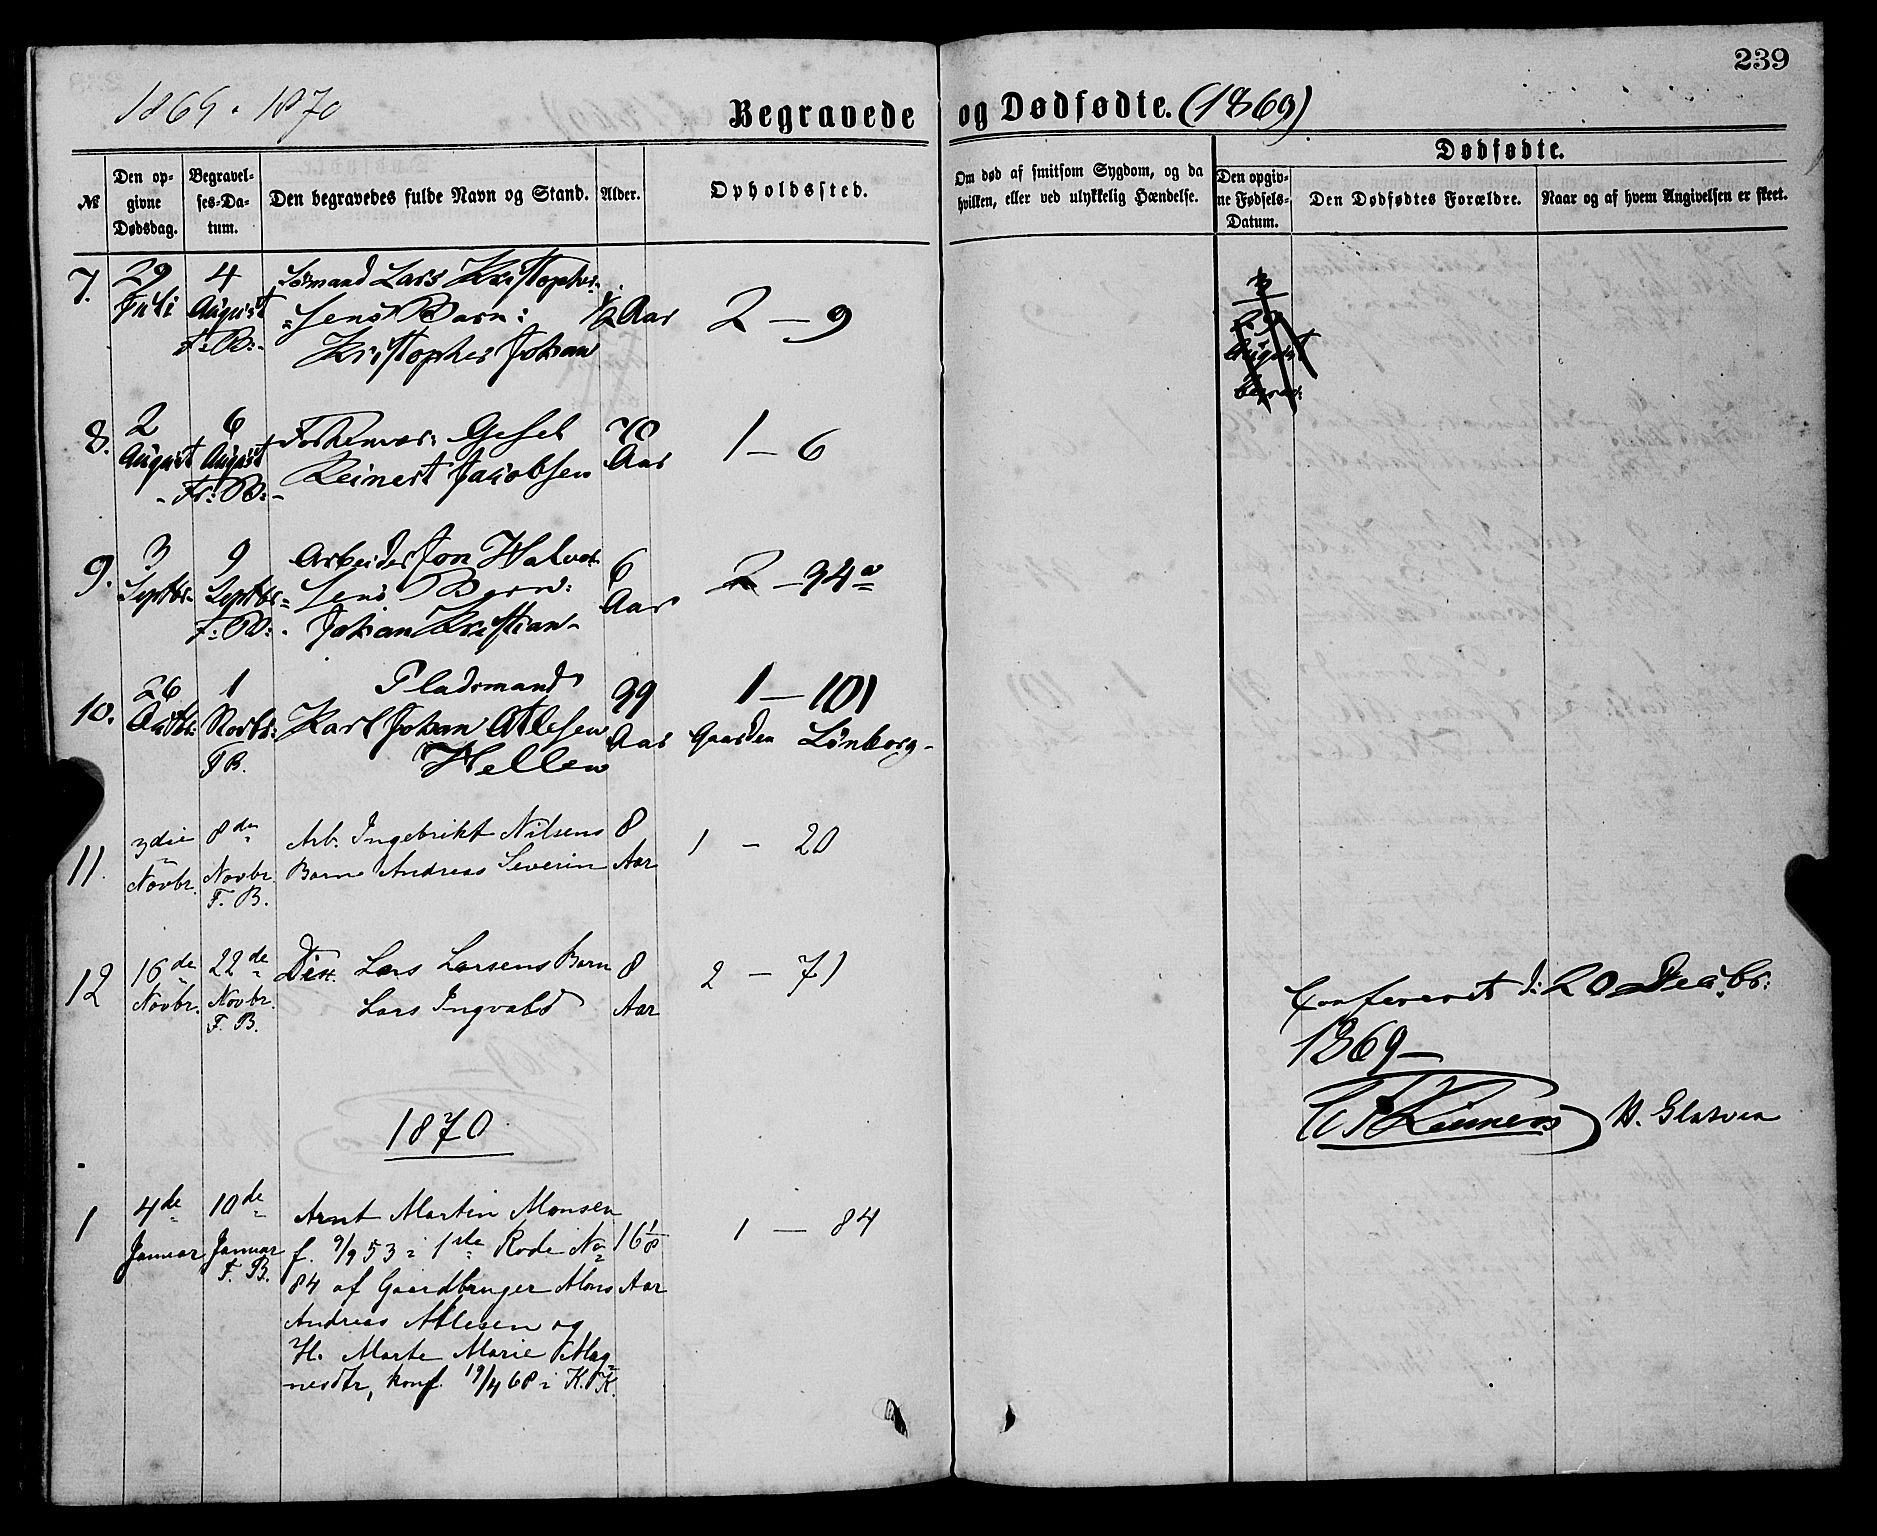 239
1869 - 1870 Begravede og Dødfødte. (1869)
№
Den op-
givne
Dødsdag.
Begravel-
ses-Da-
tum.
Den begravedes fulde Navn og Stand.
Alder.
Opholdssted.
Om død af smitsom Sygdom, og da
hvilken, eller ved ulykkelig Hændelse.
Dødfødte.
Den opgiv-
ne Fødsels-
Datum.
Den Dødfødtes Forældre.
Naar og af hvem Angivelsen er skeet.
7. 29 4 Sømand Lars Kristopher-
Juli August =sens Barn: 1/2 Aar 2 — 9
F: B:- Kristopher Johan
August
8. 2 6 Forhenvær: Gesel 70 1 — 6
August August Reinert Jacobsen Aar
Fr: B:-
9. 3 9 Arbeider Jon Halvor 6 2 — 34a
Septbr- Septbr= sens Barn: Aar
F: B:. Johan Kristian-
10. 26 1 Pladsmand 39 1 — 101
Octbr: Novbr: Karl Johan Atlesen Aar Gaarden Lönborg-
F B. Hellen
11. 3die 8de Arb. Ingebrikt Nilsens 8 1 - 20
Novbr. Novbr. Barn Andreas Severin Aar
F. B.
12 16de 22de Dist. Lars Larsens Barn 8 2 — 71
Novbr. Novbr. Lars Ingvald Aar
F. B.
Confereret d: 20 Decbr:
1869—
H. Glatved
1870
1 4de 10de Arnt Martin Monsen 16 1/8 1 — 84
Januar Januar f. 9/9 53 i 1ste Rode No
F. B. 84 af Gaardbruger Mons Aar
Andreas Atlesen og
H. Marte Marie Mag
nesdtr, konf. 19/4 68 i K.K.